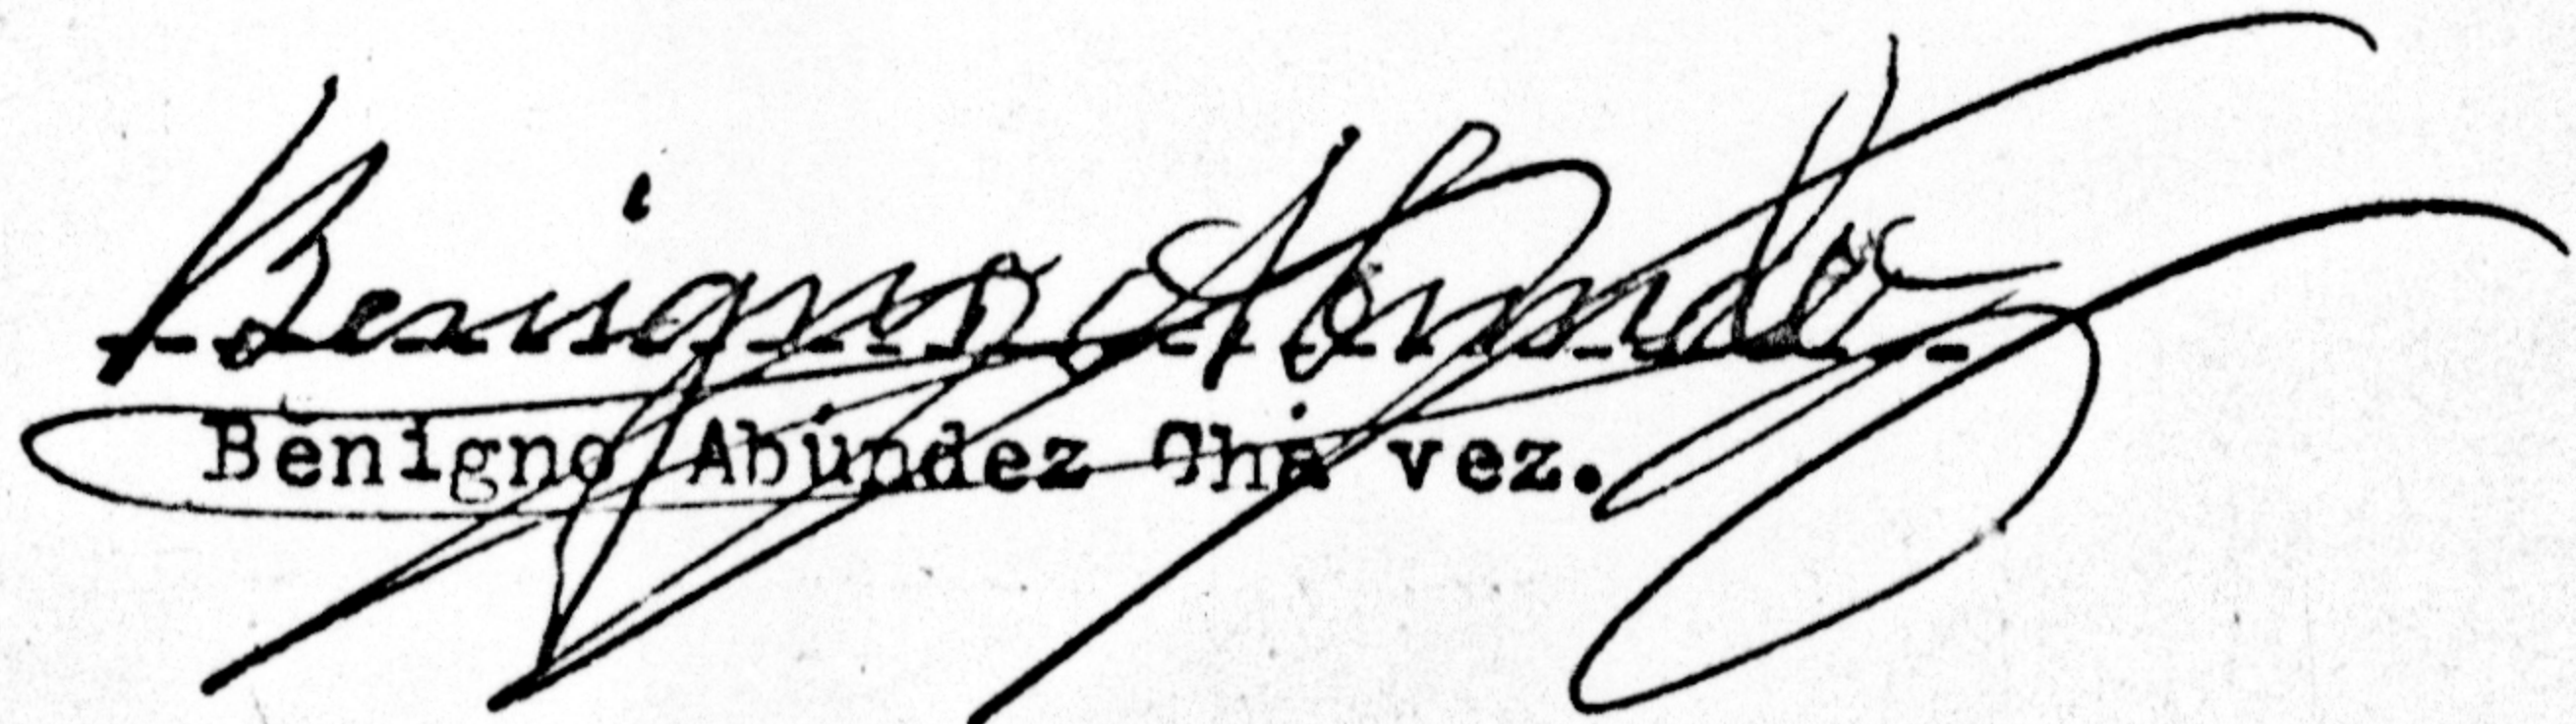 Benigno Abundez
Benigno Abúndez Chá vez.